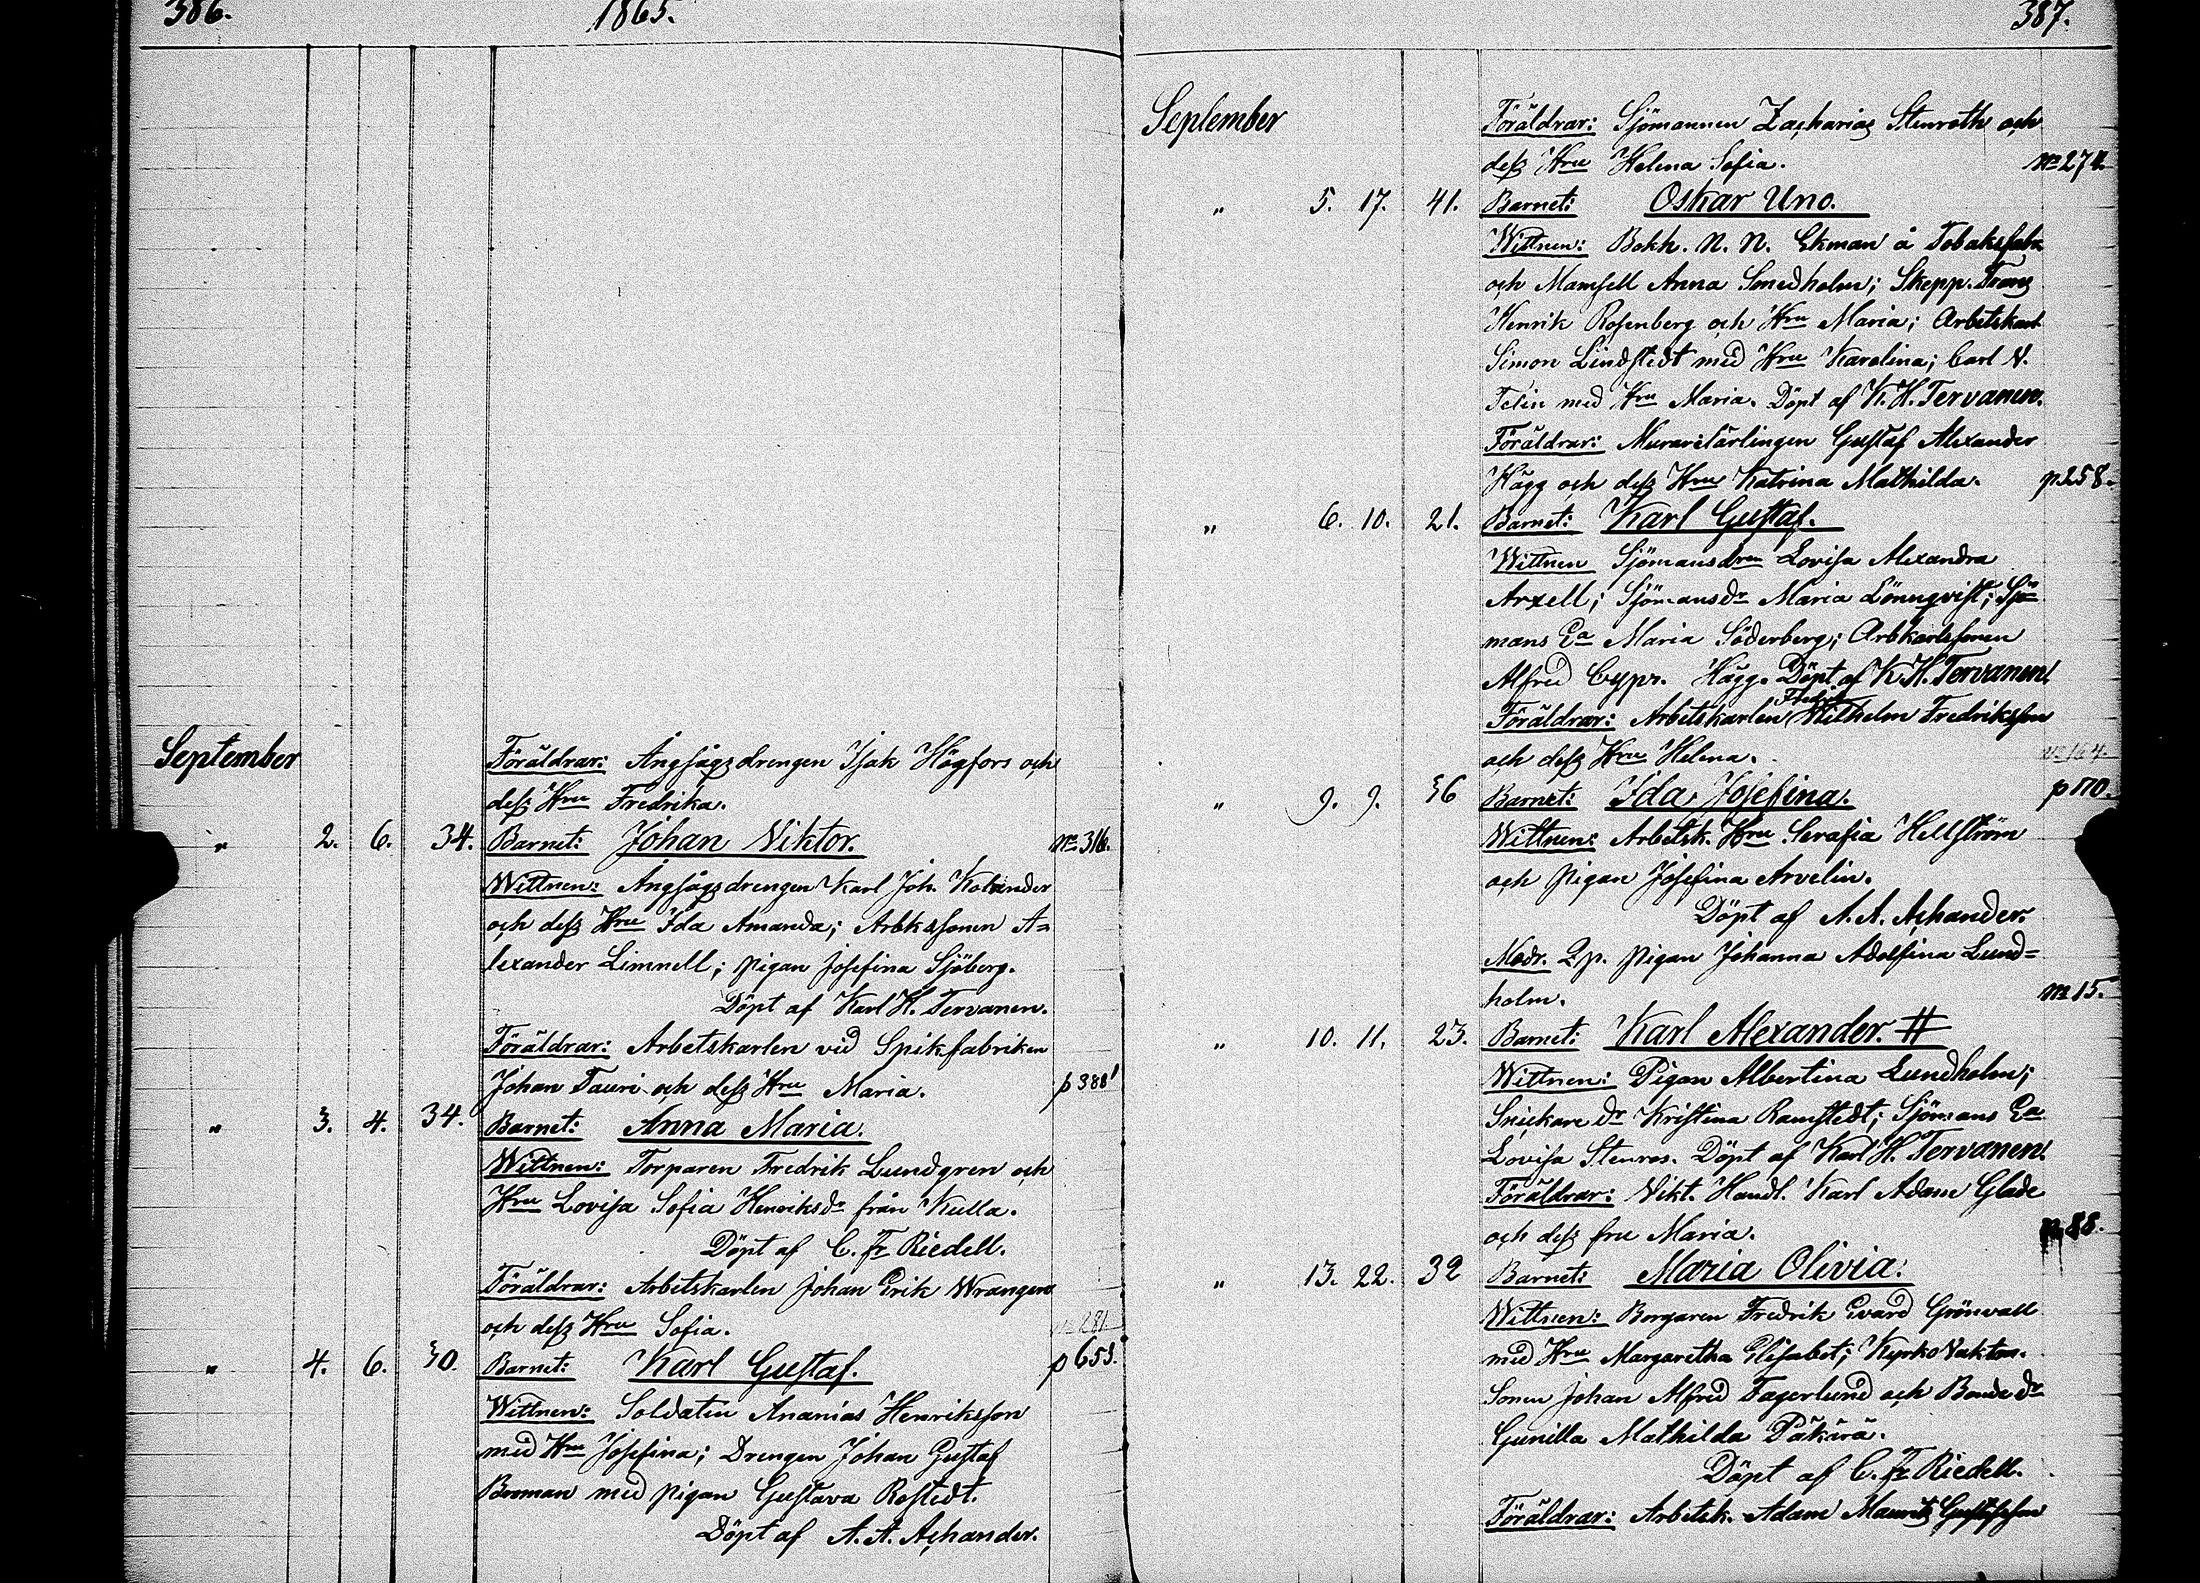 386.
1865.
September
Föräldrar: Ångsågsdrengen Isak Högfors och
dess Hru Fredrika.
" 2. 6. 34. Barnet: Johan Viktor. No 316.
Wittnen: Ångsågsdrengen Karl Joh. Kolander
och dess Hru Ida Amanda; Arbkssonen A=
lexander Limnell; pigan Josefina Sjöberg.
Döpt af Karl H. Tervanen.
Föräldrar: Arbetskarlen vid Spikfabriken
Johan Tauri och dess Hru Maria. p 388
" 3. 4. 34. Barnet: Anna Maria.
Wittnen: Torparen Fredrik Lundgren och
Hru Lovisa Sofia Henriksdr från Kulla.
Döpt af C. Fr Riedell.
Föräldrar: Arbetskarlen Johan Erik Wrangen
och dess Hru Sofia. No 281
" 4. 6. 30. Barnet: Karl Gustaf. p 653.
Wittnen: Soldaten Ananias Henriksson
med Hru Josefina; Drengen Johan Gustaf
Broman med pigan Gustava Rostedt.
Döpt af A. A. Achander.
387.
September
Föräldrar: Sjömannen Zacharias Stenroth och
dess Hru Helena Sofia. No 274.
" 5. 17. 41. Barnet: Oskar Uno.
Wittnen: Bokh. N. N. Ekman å Tobaksfabr
och Mamsell Anna Smedholm; Skepp. Frans
Henrik Rosenberg och Hru Maria; Arbetskarl
Simon Lindstedt med Hru Karolina; Carl V.
Felin med Hru Maria. Döpt af K. H. Tervanen.
Föräldrar: Murarelärlingen Gustaf Alexander
Hägg och dess Hru Katrina Mathilda. p 258.
" 6. 10. 21. Barnet: Karl Gustaf.
Wittnen Sjömansdren Lovisa Alexandra
Arxell; Sjömansdr Maria Lönnqvist; Sjö=
mans Ea Maria Söderberg; Arbkarlssonen
Alfred Cypr. Hägg. Döpt af K. H. Tervanen.
Fredrik
Föräldrar: Arbetskarlen Wilhelm Fredriksson
och dess Hru Helena. No 164.
" 9. 9. 36 Barnet: Ida Josefina. p 170.
Wittnen: Arbetsk. Hru Serafia Hellström
och pigan Josefina Arvelin.
Döpt af A. A. Achander.
Modr. Qp. pigan Johanna Adolfina Lund=
holm. No 15.
" 10. 11. 23. Barnet: Karl Alexander. #
Wittnen: Pigan Albertina Lundholm;
Snickare dr Kristina Ramstedt; Sjömans Ea
Lovisa Stenros. Döpt af Karl H. Tervanen.
Föräldrar: Vikt. Handl. Karl Adam Glade
och dess fru Maria. p 88.
" 13. 22. 32 Barnet: Maria Olivia.
Wittnen: Borgaren Fredrik Evard Grönvall
med Hru Margaretha Elisabet; Kyrko Vaktm.
Sonen Johan Alfred Fagerlund och Bonde dr
Gunilla Mathilda Päkärä.
Döpt af C. Fr Riedell.
Föräldrar: Arbetsk. Adam Maurits Gustafsson